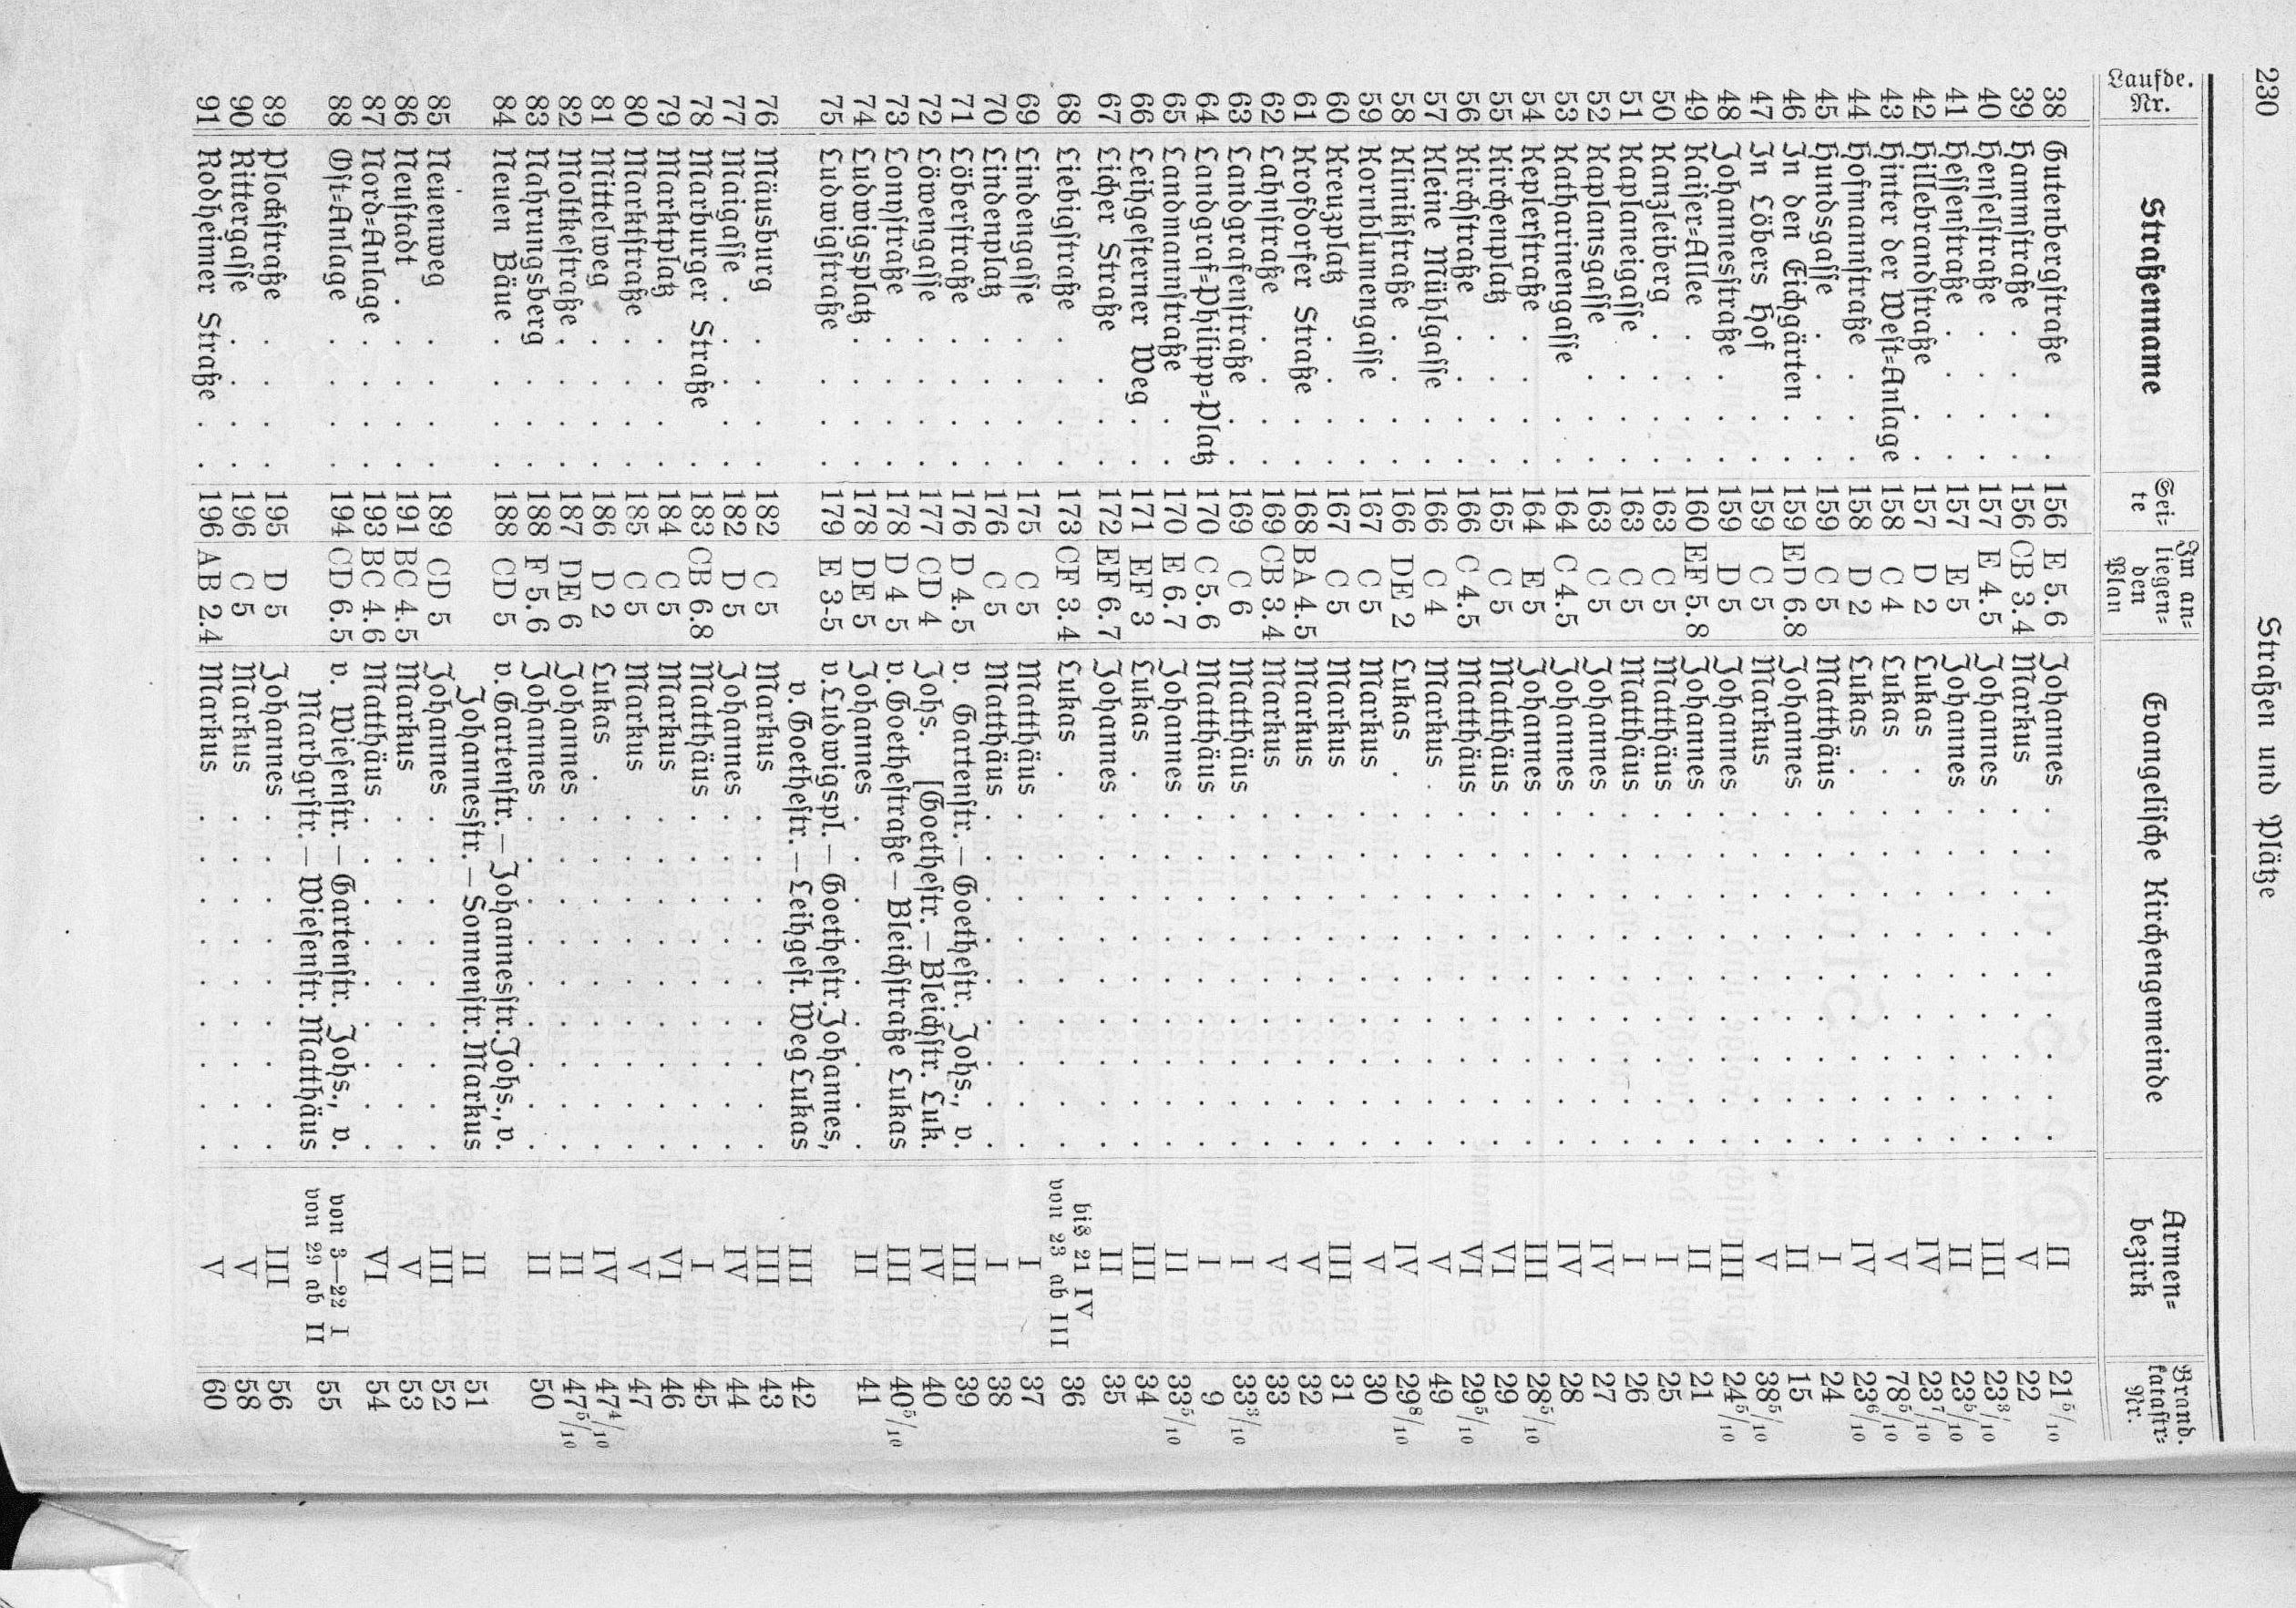 230 Straßen und Plätze
Laufde. Nr. Straßenname Sei=te Im an=liegen=den Plan Evangelische Kirchengemeinde Armen=bezirk Brand.katastr=Nr.
38 Gutenbergstraße . . . 156 E 5.6 Johannes . . . . . . . . . II 21 5/10
39 Hammstraße . . . . 156 CB 3.4 Markus . . . . . . . . . V 22
40 Henselstraße . . . . 157 E 4.5 Johannes . . . . . . . . . III 23 3/10
41 Hessenstraße . . . . 157 E 5 Johannes . . . . . . . . . II 23 5/10
42 Hillebrandstraße . . . 157 D 2 Lukas . . . . . . . . . . IV 23 7/10
43 Hinter der West=Anlage 158 C 4 Lukas . . . . . . . . . . V 78 5/10
44 Hofmannstraße . . . 158 D 2 Lukas . . . . . . . . . . IV 23 6/10
45 Hundsgasse . . . . 159 C 5 Matthäus . . . . . . . . . I 24
46 In den Eichgärten . . 159 ED 6.8 Johannes . . . . . . . . . II 15
47 In Löbers Hof . . . 159 C 5 Markus . . . . . . . . . V 38 5/10
48 Johannesstraße . . . 159 D 5 Johannes . . . . . . . . . III 24 5/10
49 Kaiser=Allee . . . . 160 EF 5.8 Johannes . . . . . . . . . II 21
50 Kanzleiberg . . . . 163 C 5 Matthäus . . . . . . . . . I 25
51 Kaplaneigasse . . . 163 C 5 Matthäus . . . . . . . . . I 26
52 Kaplansgasse . . . 163 C 5 Johannes . . . . . . . . . IV 27
53 Katharinengasse . . . 164 C 4.5 Johannes . . . . . . . . . IV 28
54 Keplerstraße . . . . 164 E 5 Johannes . . . . . . . . . III 28 5/10
55 Kirchenplatz . . . . 165 C 5 Matthäus . . . . . . . . . VI 29
56 Kirchstraße . . . . 166 C 4.5 Matthäus . . . . . . . . . VI 29 5/10
57 Kleine Mühlgasse . . 166 C 4 Markus . . . . . . . . . V 49
58 Klinikstraße . . . . 166 DE 2 Lukas . . . . . . . . . . IV 29 8/10
59 Kornblumengasse . . . 167 C 5 Markus . . . . . . . . . V 30
60 Kreuzplatz . . . . 167 C 5 Markus . . . . . . . . . III 31
61 Krofdorfer Straße . . 168 BA 4.5 Markus . . . . . . . . . V 32
62 Lahnstraße . . . . 169 CB 3.4 Markus . . . . . . . . . V 33
63 Landgrafenstraße . . 169 C 6 Matthäus . . . . . . . . . I 33 3/10
64 Landgraf=Philipp=Platz 170 C 5.6 Matthäus . . . . . . . . . I 9
65 Landmannstraße . . . 170 E 6.7 Johannes . . . . . . . . . II 33 5/10
66 Leihgesterner Weg . . 171 EF 3 Lukas . . . . . . . . . . III 34
67 Licher Straße . . . 172 EF 6.7 Johannes . . . . . . . . . II 35
68 Liebigstraße . . . . 173 CF 3.4 Lukas . . . . . . . . . . bis 21 IV von 23 ab III 36
69 Lindengasse . . . . 175 C 5 Matthäus . . . . . . . . . I 37
70 Lindenplatz . . . . 176 C 5 Matthäus . . . . . . . . . I 38
71 Löberstraße . . . . 176 D 4.5 v. Gartenstr. — Goethestr. Johs., v. III 39
72 Löwengasse . . . . 177 CD 4 Johs. [Goethestr. — Bleichstr. Luk. IV 40
73 Lonystraße . . . . 178 D 4 5 v. Goethestraße — Bleichstraße Lukas III 40 5/10
74 Ludwigsplatz . . . . 178 DE 5 Johannes . . . . . . . . . II 41
75 Ludwigstraße . . . . 179 E 3-5 v. Ludwigspl. — Goethestr. Johannes,
v. Goethestr. — Leihgest. Weg Lukas III 42
76 Mäusburg . . . . 182 C 5 Markus . . . . . . . . . III 43
77 Maigasse . . . . . 182 D 5 Johannes . . . . . . . . . IV 44
78 Marburger Straße . . 183 CB 6.8 Matthäus . . . . . . . . . I 45
79 Marktplatz . . . . 184 C 5 Markus . . . . . . . . . VI 46
80 Marktstraße . . . . 185 C 5 Markus . . . . . . . . . V 47
81 Mittelweg . . . . 186 D 2 Lukas . . . . . . . . . . IV 47 4/10
82 Moltkestraße . . . . 187 DE 6 Johannes . . . . . . . . . II 47 5/10
83 Nahrungsberg . . . 188 F 5.6 Johannes . . . . . . . . . II 50
84 Neuen Bäue . . . . 188 CD 5 v. Gartenstr. — Johannesstr. Johs., v.
Johannesstr. — Sonnenstr. Markus II 51
85 Neuenweg . . . . 189 CD 5 Johannes . . . . . . . . . III 52
86 Neustadt . . . . . 191 BC 4.5 Markus . . . . . . . . . V 53
87 Nord=Anlage . . . . 193 BC 4.6 Matthäus . . . . . . . . . VI 54
88 Ost=Anlage . . . . 194 CD 6.5 v. Wiesenstr. — Gartenstr. Johs., v. von 3—22 I
Marbgrstr. — Wiesenstr. Matthäus von 29 ab II 55
89 Plockstraße . . . . 195 D 5 Johannes . . . . . . . . . III 56
90 Rittergasse . . . . 196 C 5 Markus . . . . . . . . . V 58
91 Rodheimer Straße . . 196 AB 2.4 Markus . . . . . . . . . V 60